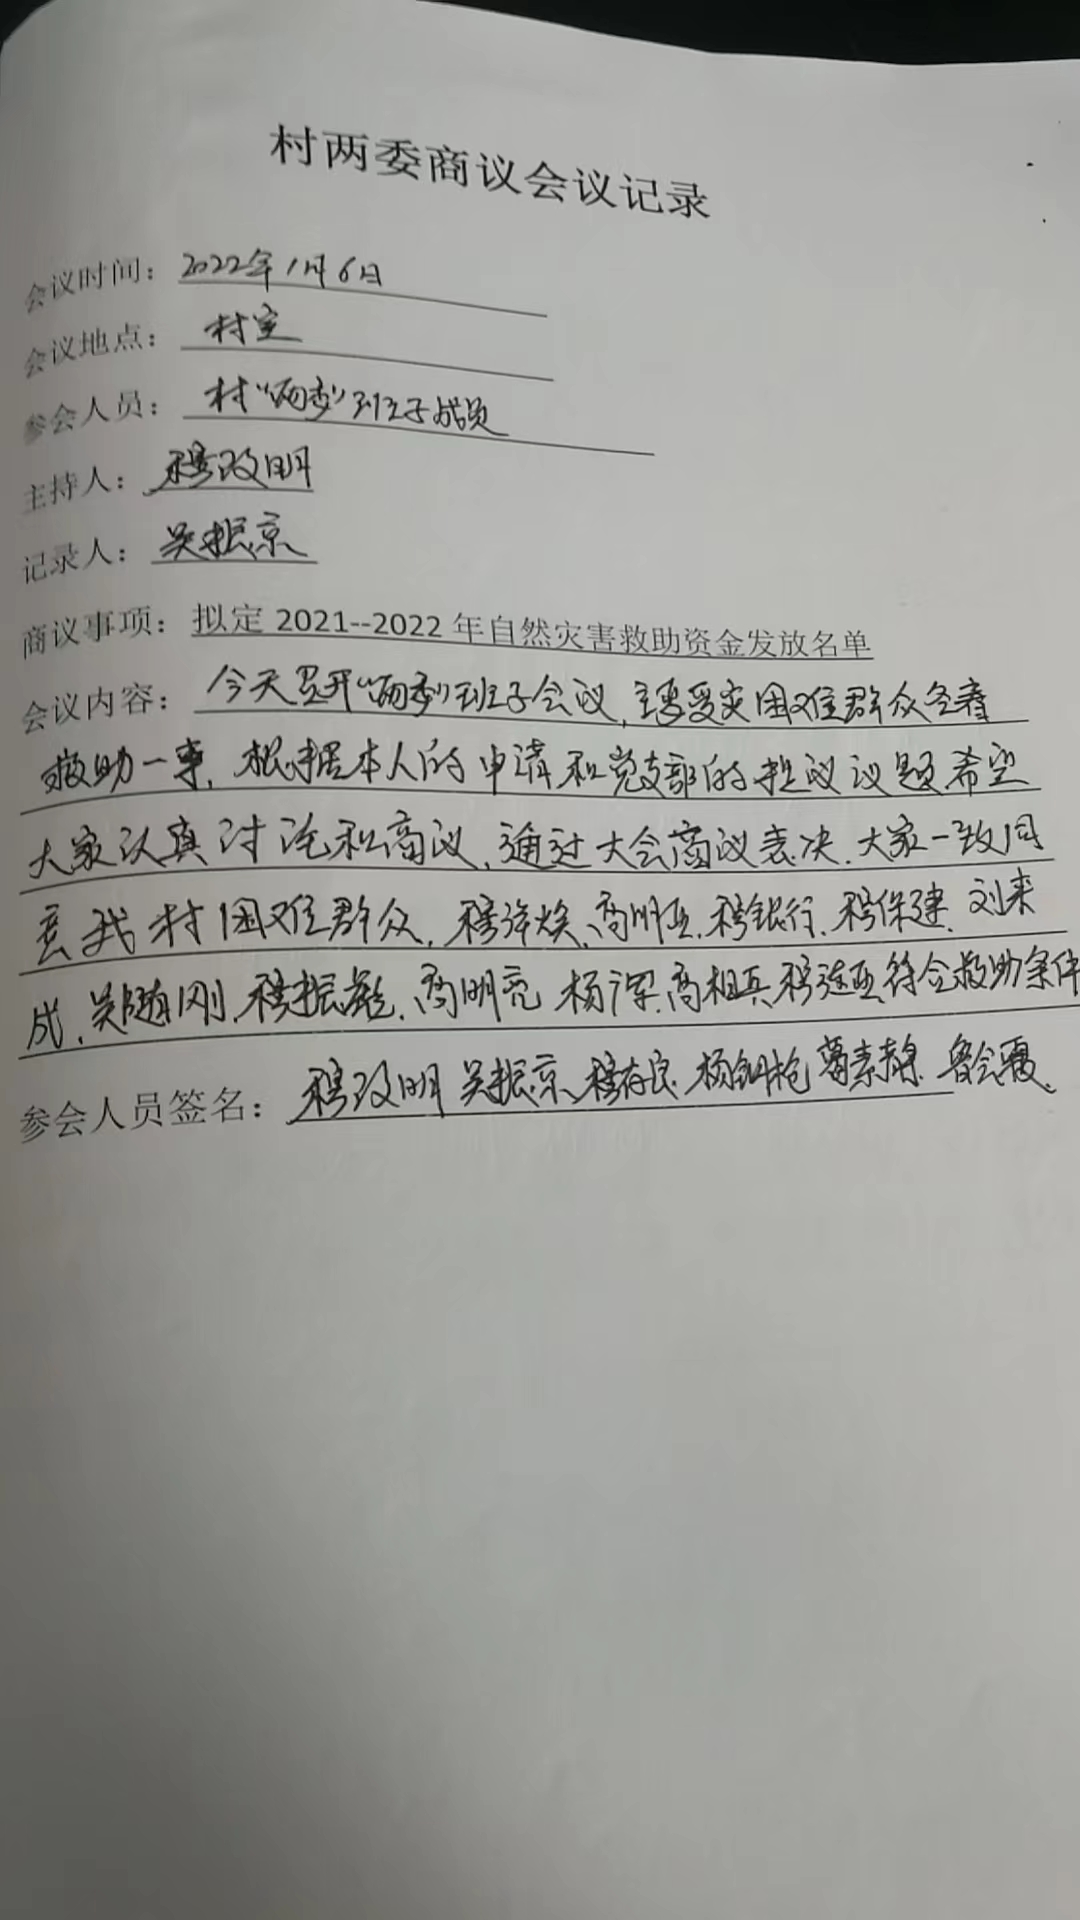 村两委商议会议记录
会议时间：2022年1月6日
会议地点：村室
参会人员：村“两委”班子成员
主持人：穆改明
记录人：吴振京
商议事项：拟定2021--2022年自然灾害救助资金发放名单
会议内容：今天召开“两委”班子会议，主要受灾困难群众冬春
救助一事，根据本人的申请和党支部的提议议题希望
大家认真讨论和商议，通过大会商议表决，大家一致同
意我村困难群众，穆 焕、商明亚、穆银行、穆保建、刘来
成、吴随刚、穆振 、商明亮 杨 商相兵 穆连亚符合救助条件
参会人员签名：穆改明 吴振京 穆存良 杨钢枪 葛素静 鲁会霞